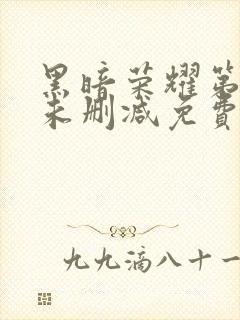 黑暗荣耀第
未删减免費
九九滴八十一